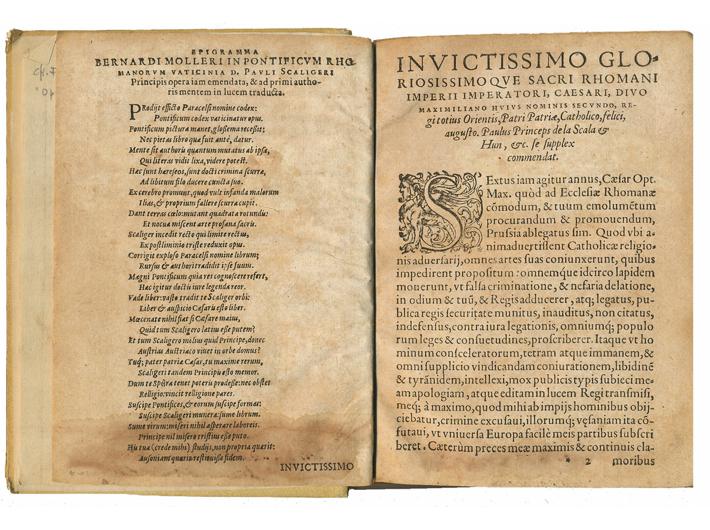 EPIGRAMMA
BERNARDI MOLLERI IN PONTIFICVM RHO-
MANORVM VATICINIA D. PAVLI SCALIGERI
Principis opera iam emendata, & ad primi autho-
ris mentem in lucem traducta.
Prodijt efficto Paracelsi nomine codex:
Pontificum codex vaticinatur opus.
Pontificum pictura manet, glossema recessit;
Nec pietas libro quæ fuit ante, datur.
Mente sit authoris quantum mutatus ab ipsa,
Qui literas vidit lixa, videre potest.
Hæc sunt hæreseos, sunt docti crimina scurræ,
Ad libitum filo ducere cuncta suo.
Ex cerebro promunt, quod vult infanda malorum
Ilias, & proprium fallere scurra cupit.
Dant terras cœlo: mutant quadrata rotundis:
Et nocua miscent arte profana sacris.
Scaliger incedit recto qui limite rectus,
Ex postliminio triste reduxit opus.
Corrigit exploso Paracelsi nomine librum;
Rursus & authori tradidit ipse suum.
Magni Pontificum quia res cognoscere refert,
Hac igitur doctis iure legenda reor.
Vade liber: vasto tradit te Scaliger orbi:
Liber & auspicio Cæsaris esto liber.
Mœcenate nihil fiat si Cæsare maius,
Quid tum Scaligero latius esse putem?
Et tum Scaligero melius quid Principe, donec
Austrias Austriaco viuet in orbe domus?
Tuque pater patriæ Cæsar, tu maxime rerum,
Scaligeri tandem Principis esto memor.
Dum te Spera tenet poteris prodesse: nec obstet
Religio: vincit religione pares.
Suscipe Pontifices, & eorum suscipe formas:
Suscipe Scaligeri munera, sume librum.
Sume virum: miseri nihil asperare laboris.
Principe nil misero tristius esse puto.
His tua (crede mihi) studijs, non propria quærit:
Ausoniam quæris restituisse fidem.
INVICTISSIMO
INVICTISSIMO GLO-
RIOSISSIMOQVE SACRI RHOMANI
IMPERII IMPERATORI, CAESARI, DIVO
MAXIMILIANO HVIVS NOMINIS SECVNDO, RE-
gi totius Orientis, Patri Patriæ, Catholico, felici,
augusto. Paulus Princeps de la Scala &
Hun, &c. se supplex
commendat.
SExtus iam agitur annus, Cæsar Opt.
Max. quòd ad Ecclesiæ Rhomanæ
cõmodum, & tuum emolumẽtum
procurandum & promouendum,
Prussia ablegatus sim. Quod vbi a-
nimaduertissent Catholicæ religio-
nis aduersarij, omnes artes suas coniunxerunt, quibus
impedirent propositum: omnemque idcirco lapidem
mouerunt, vt falsa criminatione, & nefaria delatione,
in odium & tuũ, & Regis adducerer, atq; legatus, pu-
blica regis securitate munitus, inauditus, non citatus,
indefensus, contra iura legationis, omniumq; populo
rum leges & consuetudines, proscriberer. Itaque vt ho
minum consceleratorum, tetram atque immanem, &
omni supplicio vindicandam coniurationem, libidinẽ
& tyrãnidem, intellexi, mox publicis typis subieci me-
am apologiam, atque editam in lucem Regi transmisi,
meq; à maximo, quod mihi ab impijs hominibus obij-
ciebatur, crimine excusaui, illorumq; vesaniam ita cõ-
futaui, vt vniuersa Europa facilè meis partibus subscri
beret. Cæterùm preces meæ maximis & continuis cla-
2 moribus